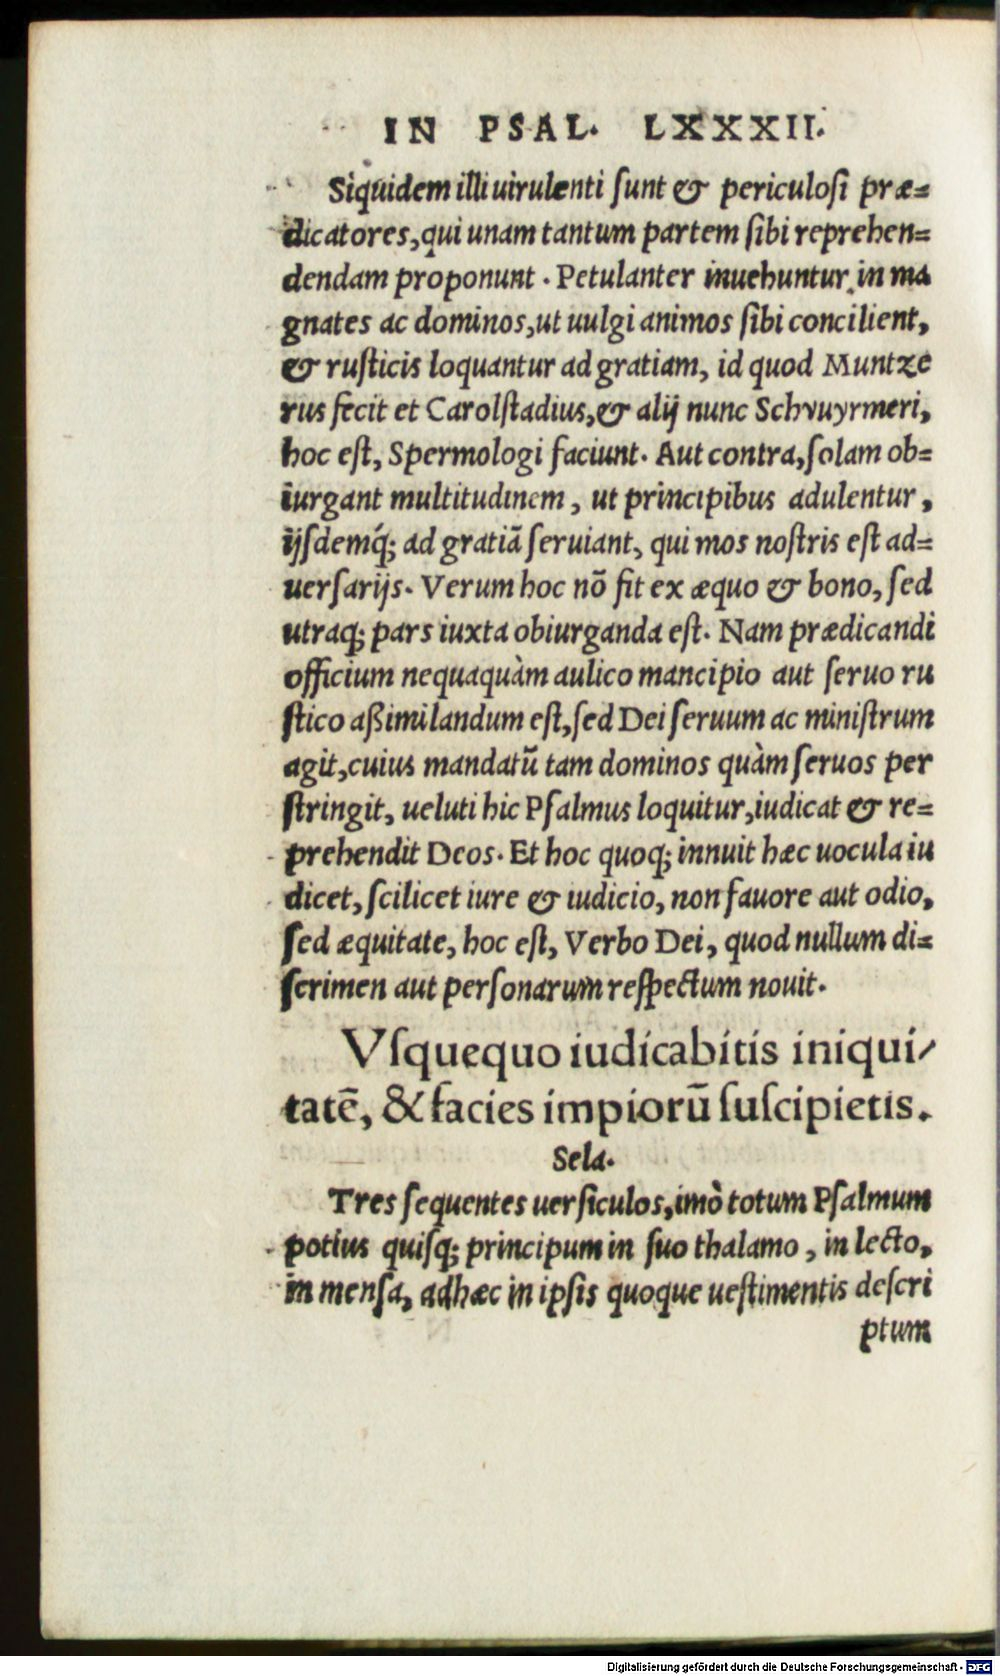 IN PSAL. LXXXII.
Siquidem illi uirulenti sunt & periculosi præ=
dicatores, qui unam tantum partem sibi reprehen=
dendam proponunt. Petulanter inuehuntur in ma
gnates ac dominos, ut uulgi animos sibi concilient,
& rusticis loquantur ad gratiam, id quod Muntze
rus fecit et Carolstadius, & alij nunc Schvuyrmeri,
hoc est, Spermologi faciunt. Aut contra, solam ob=
iurgant multitudinem, ut principibus adulentur,
ijsdemq́; ad gratiã seruiant, qui mos nostris est ad=
uersarijs. Verum hoc nõ fit ex æquo & bono, sed
utraq; pars iuxta obiurganda est. Nam prædicandi
officium nequaquàm aulico mancipio aut seruo ru
stico aßimilandum est, sed Dei seruum ac ministrum
agit, cuius mandatũ tam dominos quàm seruos per
stringit, ueluti hic Psalmus loquitur, iudicat & re=
prehendit Deos. Et hoc quoq; innuit hæc uocula iu
dicet, scilicet iure & iudicio, non fauore aut odio,
sed æquitate, hoc est, Verbo Dei, quod nullum di=
scrimen aut personarum respectum nouit.
Vsquequo iudicabitis iniqui/
tatē, & facies impiorū suscipietis.
Sela.
Tres sequentes uersiculos, imò totum Psalmum
potius quisq; principum in suo thalamo, in lecto,
in mensa, adhæc in ipsis quoque uestimentis descri
ptum
Digitalisierung gefördert durch die Deutsche Forschungsgemeinschaft - DFG